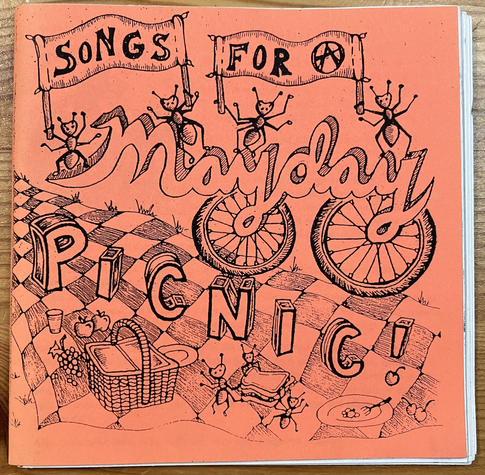 SONGS FOR A
Mayday
PICNIC!